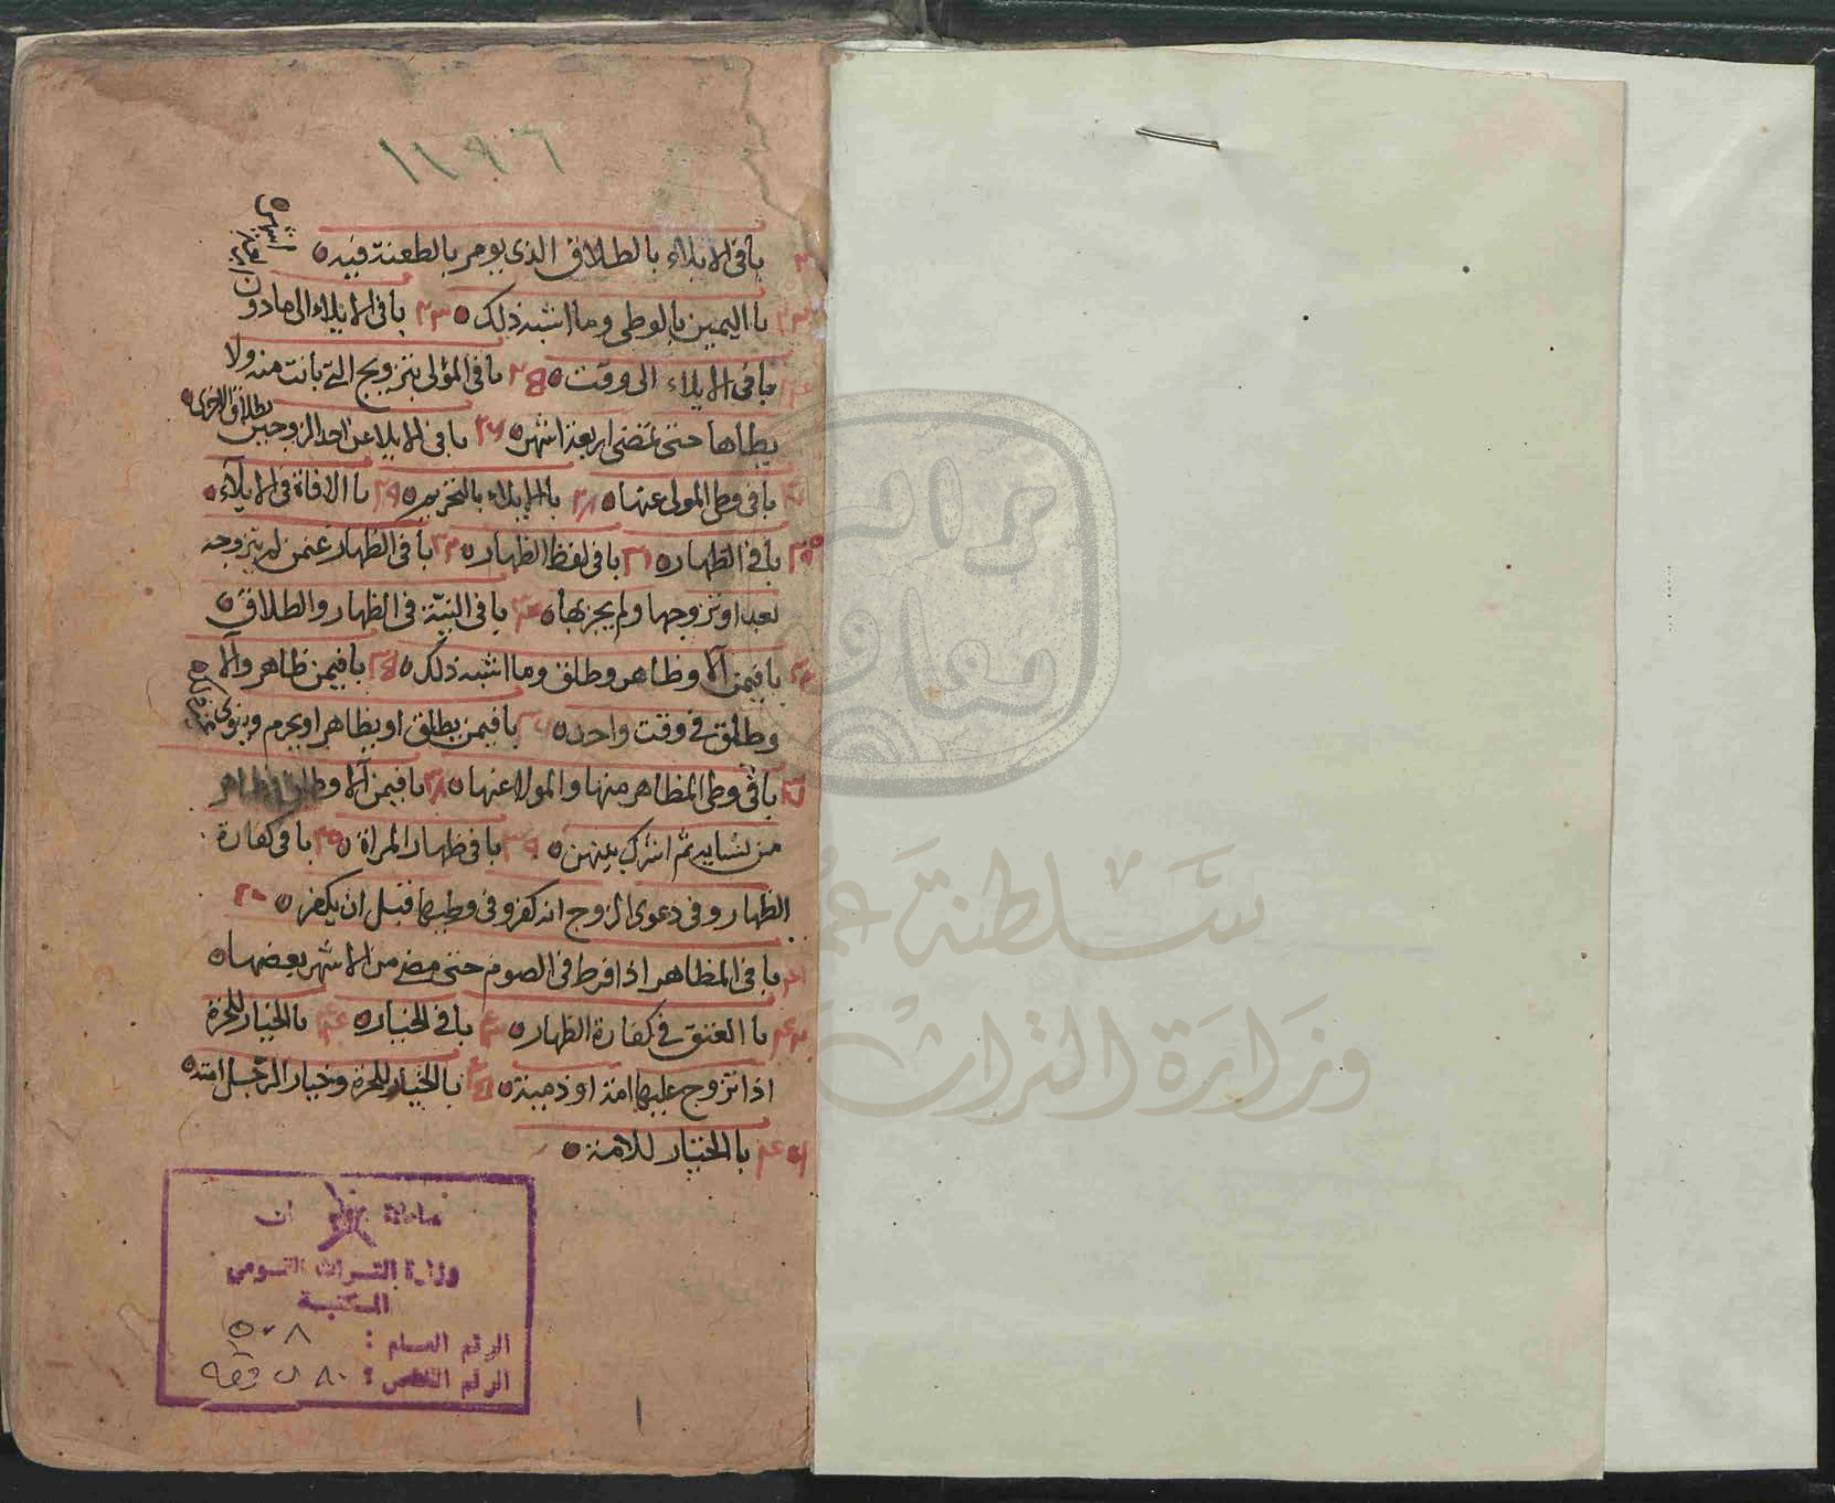 با في الايلاء بالطلاق الذي يومر بالطعنة فيه ه
با اليمين بالوطي وما اشبه ذلك ه ٢٣ با في الايلاء الى مادون
اربعة اشهر ه
با في الايلاء الى وقت ه ٢٥ با في المؤلي يتزويج التي بانت منه ولا
يطاها حتى تمضي اربعة اشهر ه ٢٦ با في الايلا عن احد الزوجين بطلاق الاخرى ه
با في وطي المولى عنها ه ٢٨ با الايلاء بالتحريم ه ٢٩ با الافاة في الايلآء ه
با في الظهار ه ٣١ با في لفظ الظهار ه ٣٢ با في الظهار عمن لم يتزوجه
بعد او تزوجها ولم يجز بها ه با في النية في الظهار والطلاق ه
با فيمن آلا وظاهر وطلق وما اشبه ذلك ه ٣٥ با فيمن ظاهر وآلا
وطلق في وقت واحد ه با فيمن يطلق او يظاهر او يحرم وينوي
با في وطي المظاهر منها والمولا عنها ه ٣٨ با فيمن آلا وطلق او ظاهر
من نسايه ثم اشرك بينهن ه ٣٩ با في ظهار المراة ه با في كفارة
الظهار وفي دعوى الزوج انه كفر وفي وطيها قبل ان يكفر ه
با في المظاهر اذا فرط في الصوم حتى مضى من الاشهر بعضها ه
با العتق في كفارة الظهار ه با في الخيار ه با الخيار للحرة
اذا تزوج عليها امة او ذمية ه با الخيار للحرة وخيار الرجل امته ه
با الخيار للامة ه
سلطنة عمان
وزارة التراث القومي
المكتبة
الرقم العام :
الرقم الخاص :
١
سلطنة عُمان
وزارة التراث